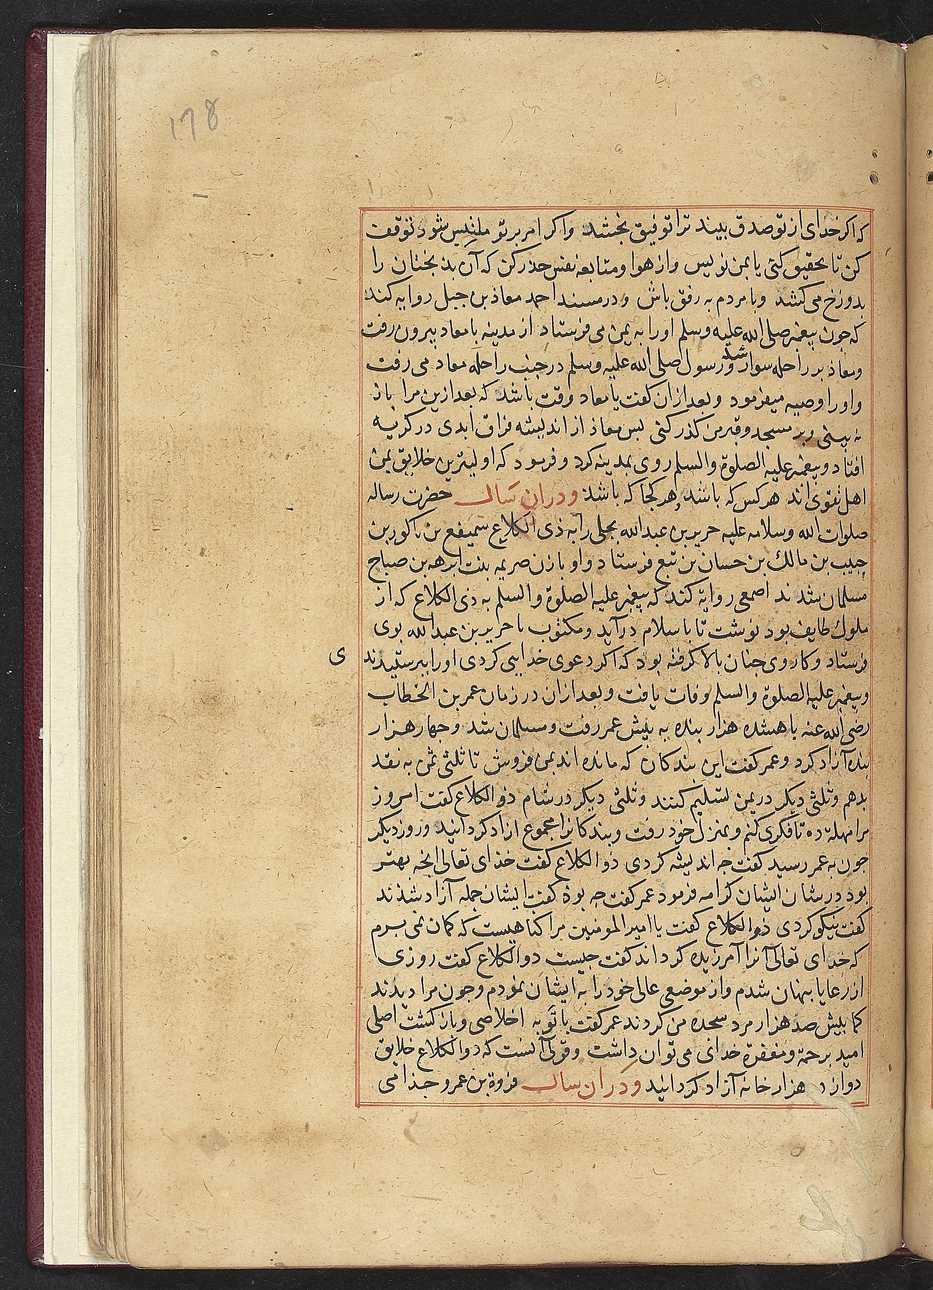 178
که اکر خدای از تو صدق بیند ترا توفیق بخشد واکر امر بر تو ملتبس شود توقف
کن تا تحقیق کنی یا بمن نویس واز هوا ومتابعه نفس حذر کن که آن بدبختان را
بدوزخ می کشد وبا مردم به رفق باش ودر مسند احمد معاذ بن جبل روایه کند
که چون پیغمبر صلی الله علیه وسلم اورا به یمن می فرستاد از مدینه با معاد بیرون رفت
ومعاذ بر راحله سوار شد ورسول صلی الله علیه وسلم در جنب راحله معاد می رفت
واورا وصیه میفرمود وبعد ازان کفت یا معاد وقت باشد که بعد ازین مرا باز
نه بینی وبر مسجد وقبر من کذر کنی بس معاذ از اندیشه فراق ابدی در کریه
افتاد وپیغمبر علیه الصلوة والسلم روی بمدینه کرد وفرمود که اولیترین خلایق بمن
اهل تقوی اند هر کس که باشد وهر کجا که باشد ودران سال حضرت رساله
صلوات الله وسلامه علیه جریر بن عبدالله بجلی را به ذی الکلاع سمیفع بن ناکور بن
حبیب بن مالک بن حسان بن تبع فرستاد واو با زن صریمه بنت ابرهه بن صباح
مسلمان شدند اصمعی روایه کند که پیغمبر علیه الصلوة والسلم به ذی الکلاع که از
ملوک طایف بود نوشت تا باسلام درآید ومکتوب با جریر بن عبدالله بوی
فرستاد وکار وی چنان بالا کرفته بود که اکر دعوی خدایی کردی اورا ببرستیدندی
وپیغمبر علیه الصلوة والسلم وفات یافت وبعد ازان در زمان عمر بن الخطاب
رضی الله عنه با هشده هزار بنده به پیش عمر رفت ومسلمان شد وچهار هزار
بنده آزاد کرد وعمر کفت این بندکان که مانده اند بمن فروش تا ثلثی ثمن به نقد
بدهم وثلثی دیکر در یمن تسلیم کنند وثلثی دیکر در شام ذو الکلاع کفت امروز
مرا مهله ده تا فکری کنم وبمنزل خود رفت وبندکانرا مجموع ازاد کردانید وروز دیکر
چون به عمر رسید کفت چه اندیشه کردی ذو الکلاع کفت خدای تعالی انچه بهتر
بود در شان ایشان کرامه فرمود عمر کفت چه بود کفت ایشان جمله آزاد شدند
کفت نیکو کردی ذو الکلاع کفت یا امیر المومنین مرا کناهیست که کمان نمی برم
که خدای تعالی آنرا آمرزیده کرداند کفت چیست ذو الکلاع کفت روزی
از رعایا پنهان شدم واز موضعی عالی خودرا به ایشان نمودم وچون مرا دیدند
کما بیش صد هزار مرد سجده من کردند عمر کفت با توبه اخلاصی وبازکشت اصلی
امید برحمة ومغفرة خدای می توان داشت وقولی آنست که ذو الکلاع خلایق
دوازده هزار خانه آزاد کردانید ودران سال فروة بن عمرو جذامی